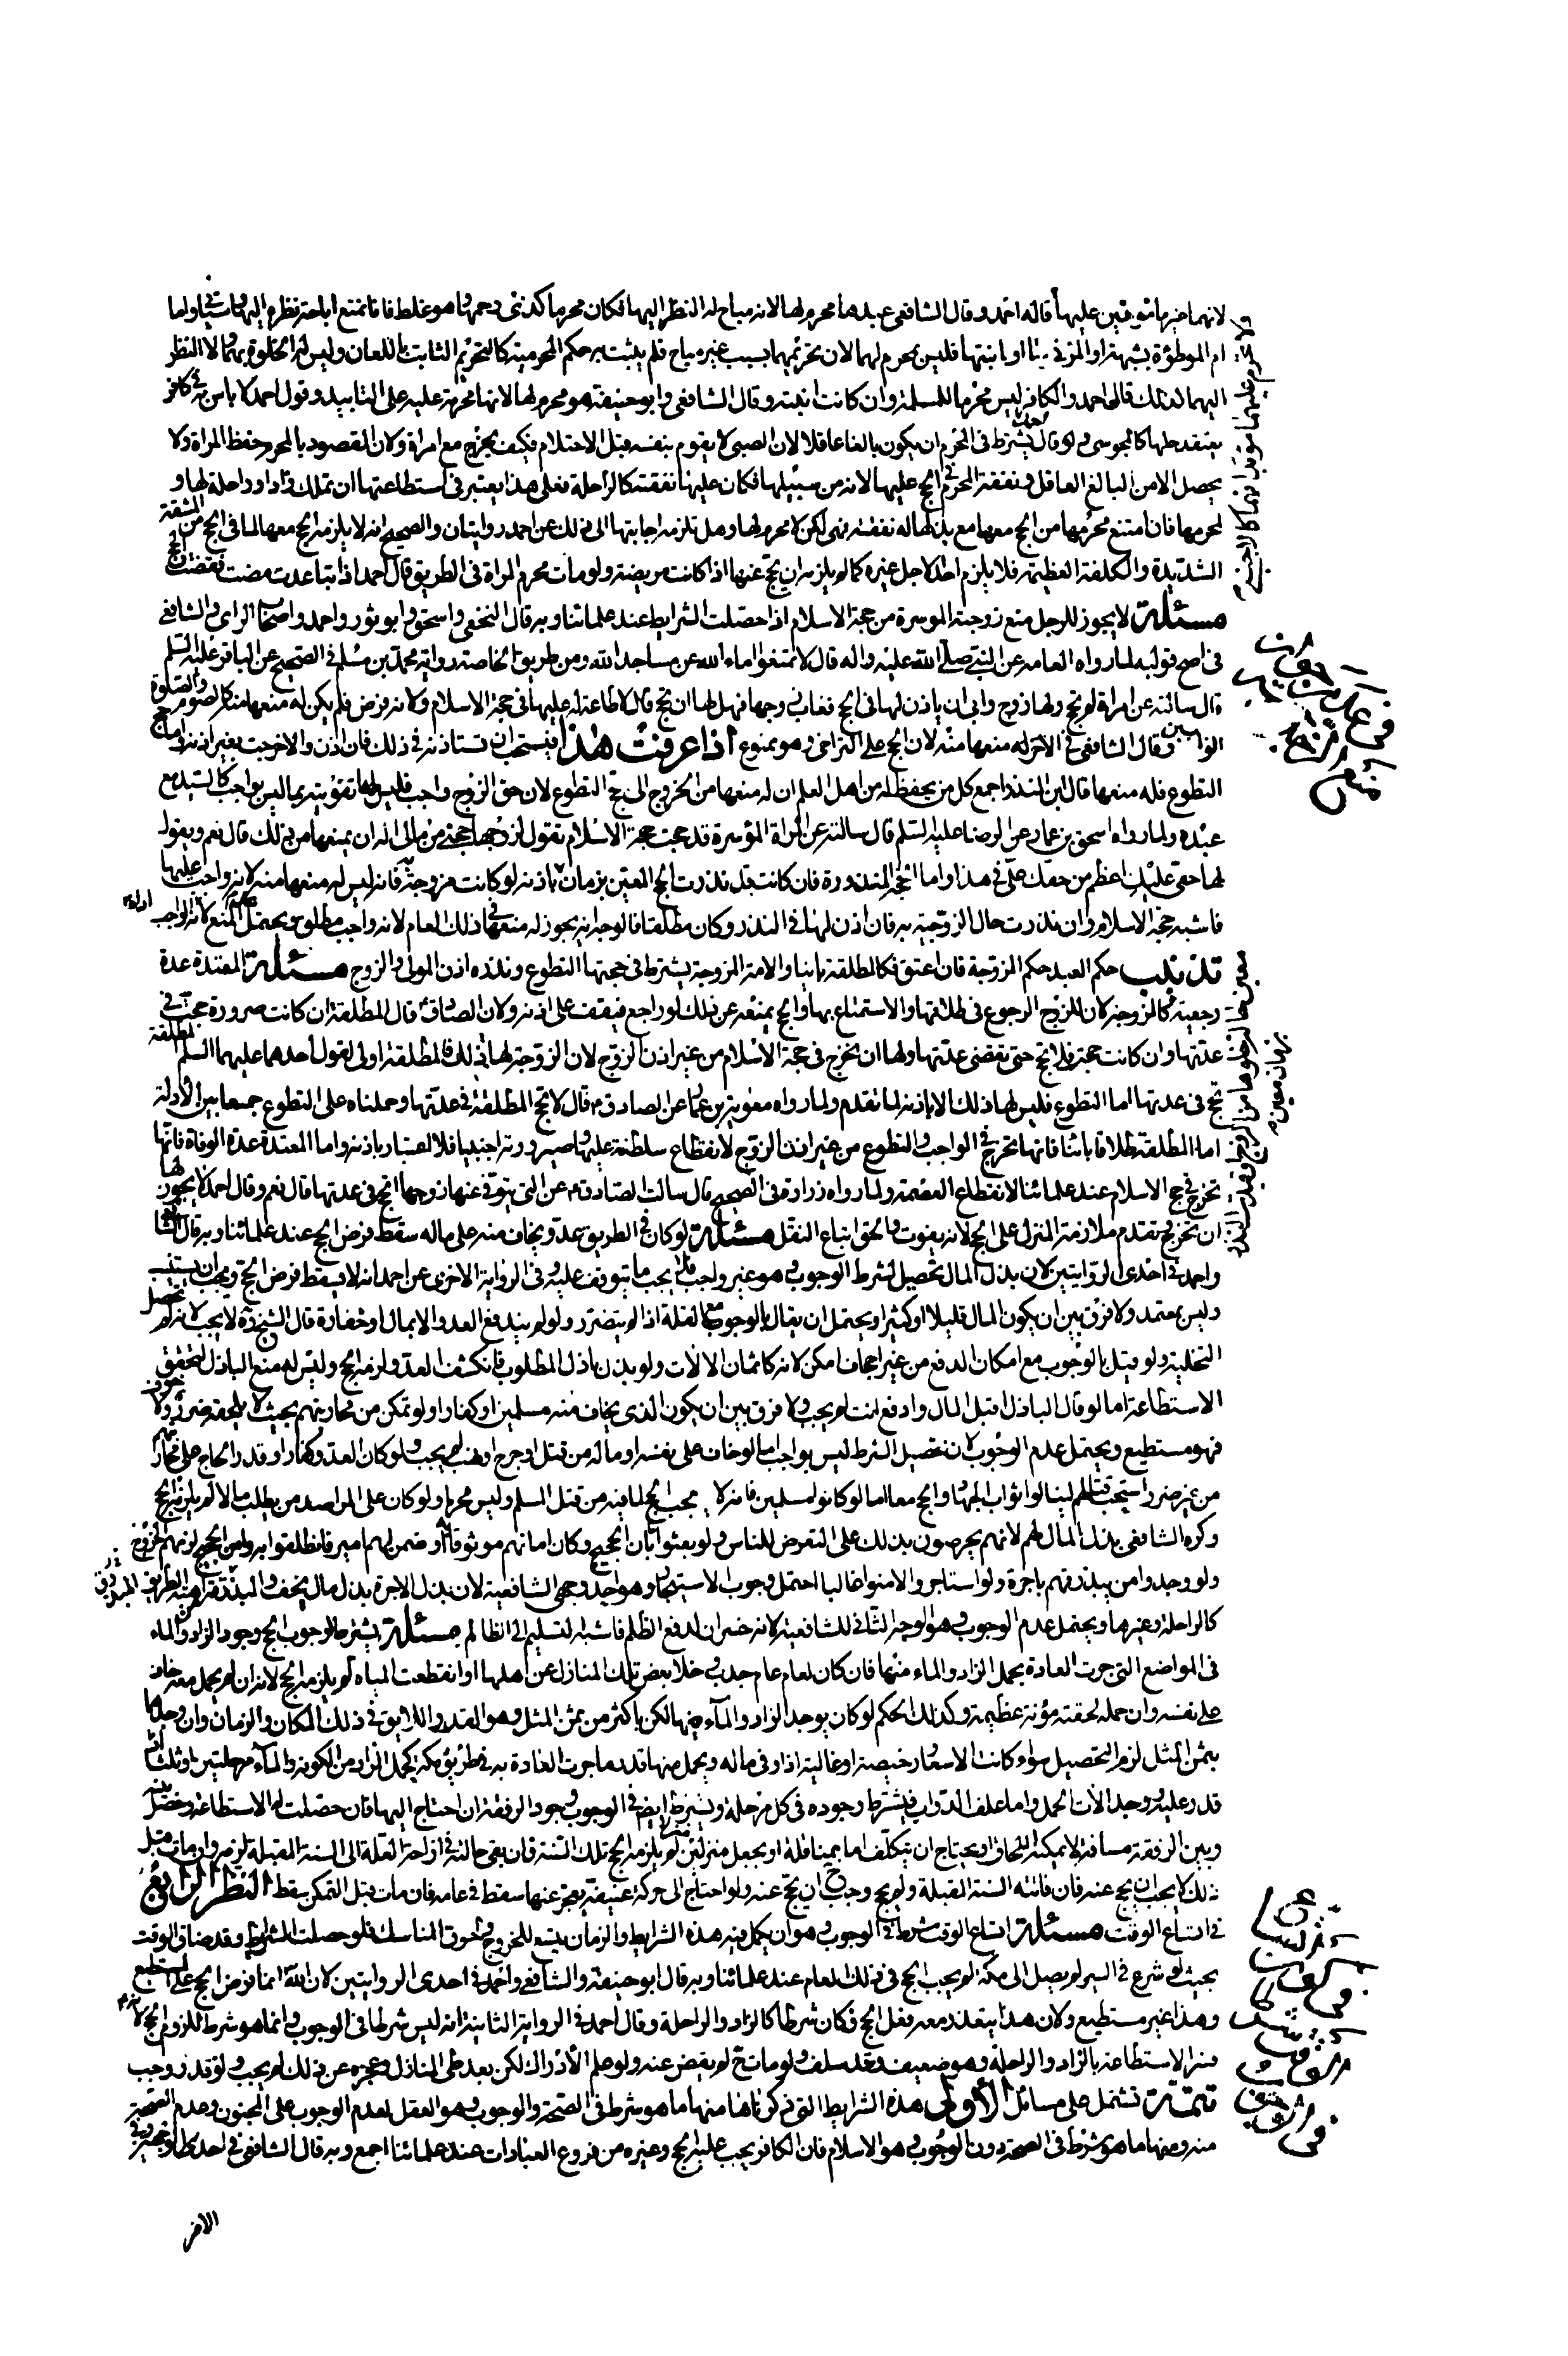 لانهما غير مأمونين عليها قاله احمد وقال الشافعي عبدها محرم لها لانه مباح له النظر اليها فكان محرما كذي رحمها وهو غلط فانا نمنع اباحة نظره اليها وسيأتي واما
ام الموطوءة بشبهة او المزني بها او ابنتها فليس بمحرم لهما لان تحريمهما بسبب غير مباح فلم يثبت به حكم المحرمية كالتحريم الثابت باللعان وليس له الخلوة بهما ولا النظر
اليهما لذلك قاله احمد والكافر ليس محرما للمسلمة وان كانت ابنته وقال الشافعي وابو حنيفة هو محرم لها لانها محرمة عليه على التابيد وقول احمد لا باس به في كافر
يعتقد حلها كالمجوسي وقال يشترط في المحرم ان يكون بالغا عاقلا لان الصبي لا يقوم بنفسه قبل الاحتلام فكيف يخرج مع امراة ولان المقصود بالمحرم حفظ المراة ولا
يحصل الا من البالغ العاقل ونفقة المحرم في الحج عليها لانه من سبيلها فكان عليها نفقته كالراحلة فعلى هذا يعتبر في استطاعتها ان تملك زادا وراحلة لها و
لمحرمها فان امتنع محرمها من الحج معها مع بذلها له نفقته فهي كمن لا محرم لها وهل تلزمه اجابتها الى ذلك عن احمد روايتان والصحيح انه لا يلزمه الحج معها لما في الحج من المشقة
الشديدة والكلفة العظيمة فلا يلزم احدا لاجل غيره كما لم يلزمه ان يحج عنها اذا كانت مريضة ولو مات محرم المراة في الطريق قال احمد اذا تباعدت مضت فقضت الحج
مسئلة لا يجوز للرجل منع زوجته الموسرة من حجة الاسلام اذا حصلت الشرايط عند علمائنا وبه قال النخعي واسحق وابو ثور واحمد واصحاب الراي والشافعي
في اصح قوليه لما رواه العامه عن النبي صلى الله عليه واله قال لا تمنعوا اماء الله عن مساجد الله ومن طريق الخاصة رواية محمد بن مسلم في الصحيح عن الباقر عليه السلم
قال سالته عن امراة لم تحج ولها زوج وابى ان ياذن لها في الحج فغاب زوجها فهل لها ان تحج قال لا طاعة له عليها في حجة الاسلام ولانه فرض فلم يكن له منعها منه كالصوم والصلوة
الواجبين وقال الشافعي في الاخر له منعها منه لان الحج على التراخي وهو ممنوع اذا عرفت هذا فيستحب ان تستاذنه في ذلك فان اذن والا خرجت بغير اذنه اما حج
التطوع فله منعها قال ابن المنذر اجمع كل من يحفظ له من اهل العلم ان له منعها من الخروج الى حج التطوع لان حق الزوج واجب فليس لها تفويته بما ليس بواجب كالسيد مع
عبده ولما رواه اسحق بن عمار عن الرضا عليه السلم قال سالته عن المراة الموسرة قد حجت حجة الاسلام تقول لزوجها احجني من مالي اله ان يمنعها من ذلك قال نعم ويقول
لها حقي عليك اعظم من حقك علي في هذا واما الحجة المنذورة فان كانت قد نذرت الحج المعين بزمان باذنه لو كانت مزوجة به فانه ليس له منعها منه لانه واجب عليها
فاشبه حجة الاسلام وان نذرت حال الزوجية به فان اذن لها في النذر وكان مطلقا فالوجه انه يجوز له منعها في ذلك العام لانه واجب مطلق ويحتمل عدم المنع لانه اداء الواجب
تذنيب حكم العبد حكم المزوجة فان اعتق فكالمطلقة باينا والامة المزوجة يشترط في حجتها التطوع ونذره اذن المولى والزوج مسئلة المعتدة عدة
رجعية كالمزوجة لان للزوج الرجوع في طلاقها والاستمتاع بها والحج يمنعه عن ذلك لو راجع فيقف على اذنه ولان الصادق ع قال المطلقة ان كانت صرورة حجت في
عدتها وان كانت حجة فلا تحج حتى تقضي عدتها ولها ان تخرج في حجة الاسلام من غير اذن الزوج لان الزوجة لها ذلك فالمطلقة اولى لقول احدهما عليهما السلم المطلقة
تحج في عدتها اما التطوع فليس لها ذلك الا باذنه لما تقدم ولما رواه معوية بن عمار عن الصادق ع قال لا تحج المطلقة في عدتها وحملناه على التطوع جمعا بين الادلة
اما المطلقة طلاقا بائنا فانها تخرج في الواجب والتطوع من غير اذن الزوج لانقطاع سلطنته عليها وصيرورته اجنبيا فلا اعتبار باذنه واما المعتدة عدة الوفاة فانها
تخرج في حج الاسلام عند علمائنا لانقطاع العصمة ولما رواه زرارة في الصحيح قال سالت الصادق ع عن التي يتوفى عنها زوجها اتحج في عدتها قال نعم وقال احمد لا يجوز لها
ان تخرج لتقدم ملازمة المنزل على الحج لانه يفوت والحق اتباع النقل مسئلة لو كان في الطريق عدو يخاف منه على ماله سقط فرض الحج عند علمائنا وبه قال الشافعي
واحمد في احدى الروايتين لان بذل المال تحصيل لشرط الوجوب وهو غير واجب فلا يجب ما يتوقف عليه وفي الرواية الاخرى عن احمد انه لا يسقط فرض الحج ويجب ان يستنيب
وليس بمعتمد ولا فرق بين ان يكون المال قليلا او كثيرا ويحتمل ان يقال بالوجوب مع القلة اذا لم يتضرر ولو لم يندفع العدو الا بمال او خفارة قال الشيخ ره لا يجب لانه لم تحصل
التخلية ولو قيل بالوجوب مع امكان الدفع من غير اجحاف امكن لانه كاثمان الالات ولو بذل باذل المطلوب فانكشف العدو لزمه الحج وليس له منع الباذل لتحقق
الاستطاعة اما لو قال الباذل اقبل المال وادفع انت لم يجب ولا فرق بين ان يكون الذي يخاف منه مسلمين او كفارا ولو تمكن من محاربتهم بحيث لا يلحقه ضرر ولا خوف
فهو مستطيع ويحتمل عدم الوجوب لان تحصيل الشرط ليس بواجب اما لو خاف على نفسه او ماله من قتل او جرح او نهب لم يجب ولو كان العدو كفارا وقدر الحاج على محاربتهم
من غير ضرر استحب قتالهم لينالوا ثواب الجهاد والحج معا اما لو كانوا مسلمين فانه لا يجب الحج لما فيه من قتل المسلم وليس محرما ولو كان على المراصد من يطلب مالا لم يلزمه الحج
وكره الشافعي بذل المال لهم لانهم يحرصون بذلك على التعرض للناس ولو بعثوا بامان الحجيج وكان امانهم موثوقا او ضمن لهم امير فانطلقوا به وامن الحجيج لزمهم الخروج
ولو وجدوا من يبذرقهم باجرة ولو استاجروا لامنوا غالبا احتمل وجوب الاستيجار وهو احد وجهي الشافعية لان بذل الاجرة بذل مال يخف والبذرقة اهبة الطريق
كالراحلة وغيرها ويحتمل عدم الوجوب وهو الوجه الثاني للشافعية لانه خسران لدفع الظلم فاشبه التسليم الى الظالم مسئلة يشترط لوجوب الحج وجود الزاد والماء
في المواضع التي جرت العادة بحمل الزاد والماء منها فان كان العام عام جدب وخلا بعض تلك المنازل عن اهلها او انقطعت المياه لم يلزمه الحج لانه ان لم يحمل معه خاف
على نفسه وان حمله لحقته مؤنة عظيمة وكذلك الحكم لو كان يوجد الزاد والماء فيها لكن باكثر من ثمن المثل وهو القدر اللايق في ذلك المكان والزمان وان وجدهما
بثمن المثل لزم التحصيل سواء كانت الاسعار رخيصة او غالية اذا وفى ماله ويحمل منها قدر ما جرت العادة به في طريق مكة كحمل الزاد من الكوفة والماء مرحلتين او ثلثا اذا
قدر عليه ووجد الات الحمل واما علف الدواب فيشترط وجوده في كل مرحلة ويشترط ايضا في الوجوب وجود الرفقة ان احتاج اليها فان حصلت له الاستطاعة وحصل بينه
وبين الرفقة مسافة لا يمكنه اللحاق او يحتاج ان يتكلف اما بمناقلة او بجعل منزلين منزلا لم يلزمه الحج تلك السنة فان بقي حاله في ازاحة العلة الى السنة المقبلة لزمه وان مات قبل
ذلك لا يجب ان يحج عنه فان فاتته السنة المقبلة ولم يحج وجب ح ان يحج عنه ولو احتاج الى حركة عنيفة يعجز عنها سقط في عامه فان مات قبل التمكن سقط النظر الرابع
في اتساع الوقت مسئلة اتساع الوقت شرط في الوجوب وهو ان يكمل فيه هذه الشرايط والزمان يتسع للخروج ولحوق المناسك فلو حصلت الشرايط وقد ضاق الوقت
بحيث لو شرع في السير لم يصل الى مكة لم يجب الحج في ذلك العام عند علمائنا وبه قال ابو حنيفة والشافعي واحمد في احدى الروايتين لان الله انما فرض الحج على المستطيع
وهذا غير مستطيع ولان هذا يتعذر معه فعل الحج فكان شرطا كالزاد والراحلة وقال احمد في الرواية الثانية انه ليس شرطا في الوجوب وانما هو شرط للزوم الحج لانه ع
فسر الاستطاعة بالزاد والراحلة وهو ضعيف وقد سلف ولو مات ح لم يقض عنه ولو علم الادراك لكن بعد طي المنازل وعجزه عن ذلك لم يجب ولو قدر وجب
تتمة تشتمل على مسائل الاولى هذه الشرايط التي ذكرناها منها ما هو شرط في الصحة والوجوب وهو العقل لعدم الوجوب على المجنون وعدم الصحة
منه ومنها ما هو شرط في الصحة دون الوجوب وهو الاسلام فان الكافر يجب عليه الحج وغيره من فروع العبادات عند علمائنا اجمع وبه قال الشافعي في احد
الاخر